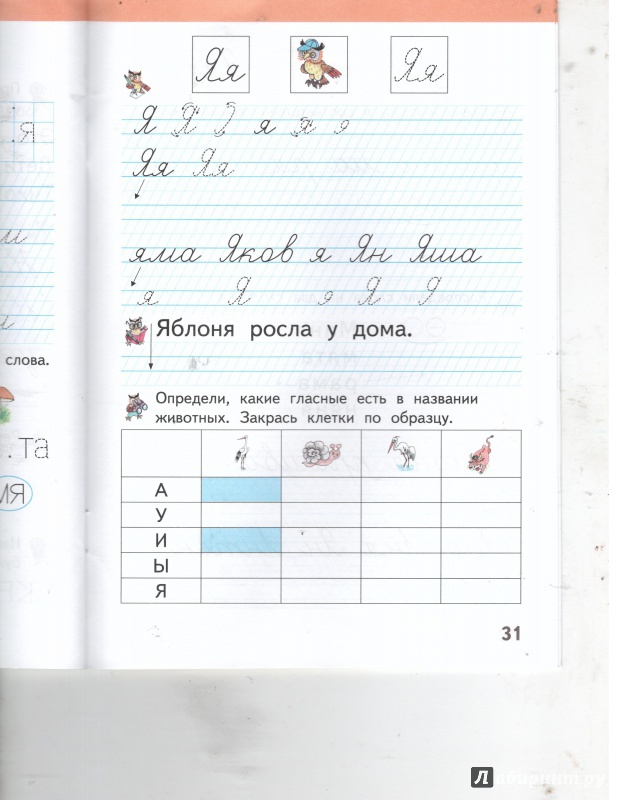 Яя Яя
Я Я я я я
Яя Яя
яма Яков я Ян Яша
я Я я Я Я
Яблоня росла у дома.
слова.
Определи, какие гласные есть в названии
животных. Закрась клетки по образцу.
.та
А
У
И
Ы
Я
31
Лабиринт.ру